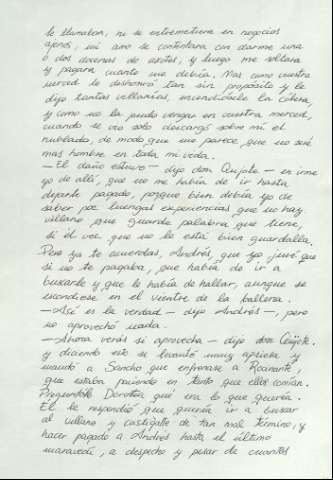 le llamaban, ni se entremetiera en negocios
ajenos, mi amo se contentara con darme una
o dos docenas de azotes, y luego me soltara
y pagara cuanto me debía. Mas como vuestra
merced le deshonró tan sin propósito y le
dijo tantas villanías, encendiósele la cólera,
y como no la pudo vengar en vuestra merced,
cuando se vio solo descargó sobre mí el
nublado, de modo que me parece que no seré
más hombre en toda mi vida.
—El daño estuvo — dijo don Quijote — en irme
yo de allí, que no me había de ir hasta
dejarte pagado, porque bien debía yo de
saber por luengas experiencias que no hay
villano que guarde palabra que tiene,
si él vee que no le está bien guardalla.
Pero ya te acuerdas, Andrés, que yo juré que
si no te pagaba, que había de ir a
buscarle y que le había de hallar, aunque se
escondiese en el vientre de la ballena.
—Así es la verdad — dijo Andrés —, pero
no aprovechó nada.
—Ahora verás si aprovecha — dijo don Quijote.
Y diciendo esto se levantó muy apriesa y
mandó a Sancho que enfrenase a Rocinante,
que estaba paciendo en tanto que ellos comían.
Preguntóle Dorotea qué era lo que quería.
Él le respondió que quería ir a buscar
al villano y castigalle de tan mal término, y
hacer pagado a Andrés hasta el último
maravedí, a despecho y pesar de cuantos